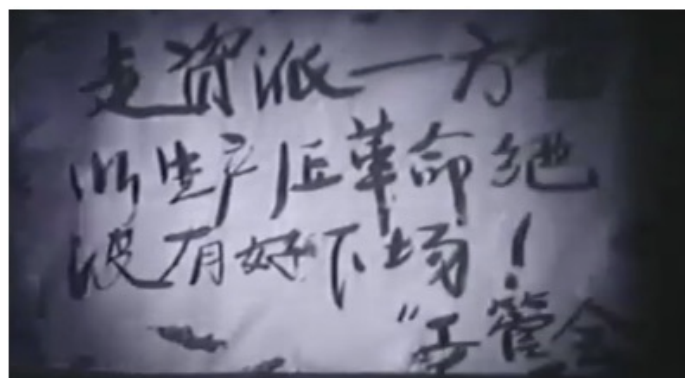 走资派一方
以生产压革命绝
没有好下场！
"工管会